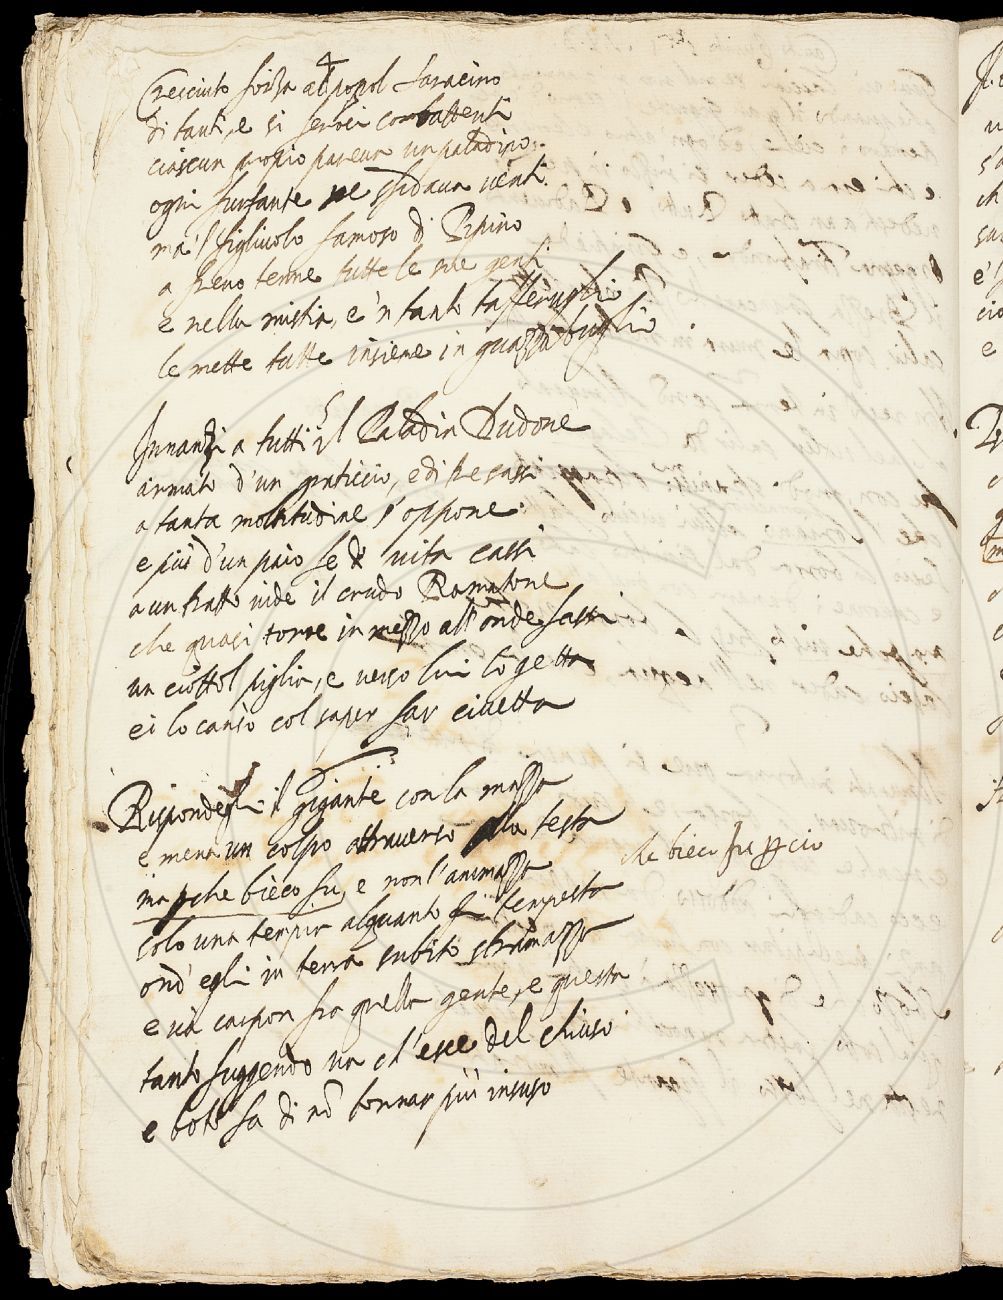 Cresciuto forza al popol saracino
di tanti, e si feroci combattenti
ciascun proprio pareva un paladino;
ogni furfante ne sfidava venti.
ma 'l figliuolo famoso di Pipino
a freno tenne tutte le sue genti
e nella mistia, e 'n tanto tafferuglio
le mette tutte insieme in guazzabuglio
Innanzi a tutti il Paladin Dudone
armato d'un graticcio, e di tre sassi
a tanta moltitudine s'oppone
e più d'un paio fe di vita cassi
a un tratto vide il crudo
che quasi torre in mezzo all'onde fassi
un ciottol piglia, e verso lui lo getta
ei lo cansò col saper far civetta
Rispondegli il gigante con la mazza
e mena un colpo attraverso alla testa
ma che bieco fu, e non l'ammazza
che bieco fu
solo una tempia alquanto gli tempesta
ond' egli in terra subito stramazza
e va carpon fra quella gente, e questa
tanto fuggendo va ch'esce del chiuso
e boto fa di nō tornar più insuso